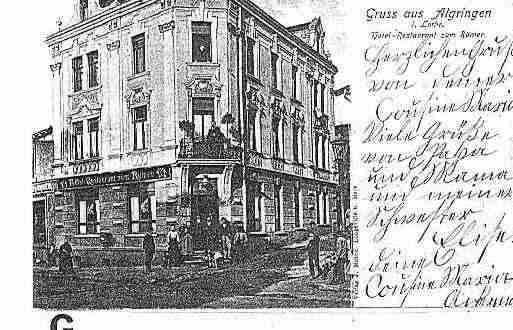 Gruss aus Algringen
i. Lothr.
Hotel-Restaurant zum Römer.
Herzlichen Gruß
von deiner
Cousine Maria
Viele Grüße
von Papa
und Mama
und meiner
Schwester
Elise
deine
Cousine Maria
Hôtel-Restaurant zum Römer
G